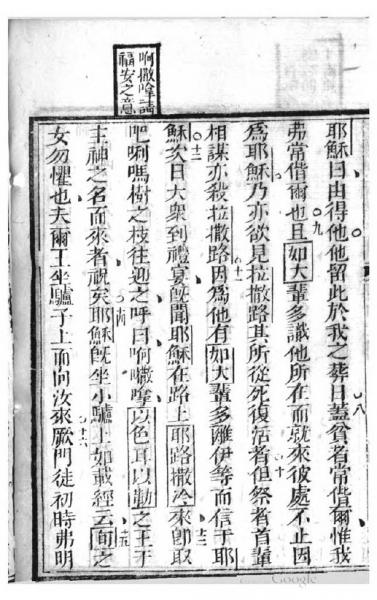 呵撒譜
福安之意
耶穌曰由得他他留此於我之葬日蓋貧者常偕爾惟我
八
弗常偕爾也且如大輩多識他所在而就來彼處不止因
九
為耶穌乃亦欲見拉撒路其所從死復活者但祭者首輩
十
相謀亦殺拉撒路因為他有如大輩多離伊等而信于耶
十一
穌次日大衆到禮宴旣聞耶穌在路上耶路撒冷來卽取
十二
十三
吧唎嗎樹之枝往迎之呼曰呵以色耳以勒之王于
主神之名而來者祝矣耶穌旣坐小驢上如載經云旬之
十四
十五
女勿懼也夫爾王坐驢子上而向汝來厥門徒初時弗明
十六
Google